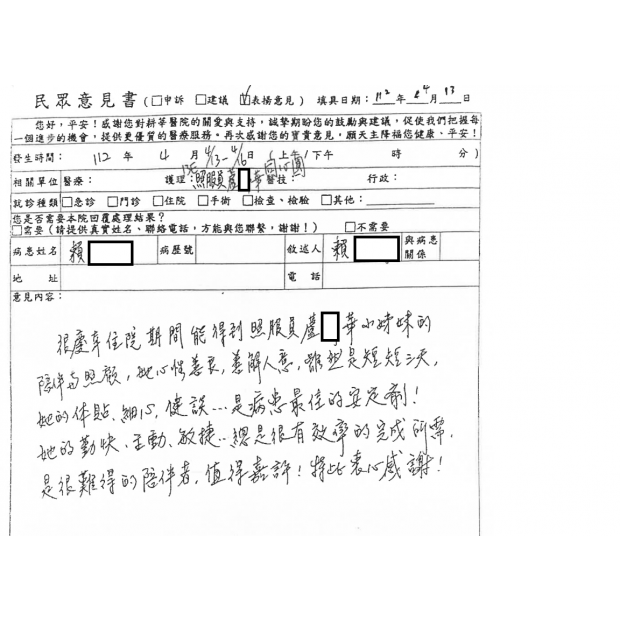 民眾意見書(□申訴 □建議 ☑表揚意見) 填具日期：112年04月13日
您好，平安！感謝您對耕莘醫院的關愛與支持，誠摯期盼您的鼓勵與建議，促使我們把握每
一個進步的機會，提供更優質的醫療服務。再次感謝您的寶貴意見，願天主降福您健康、平安！
發生時間： 112 年 4 月 4/13-4/16 日(上午/下午 時 分)
相關單位 醫療： 護理：照服員盧 華 醫技： 行政：
就診種類 □急診 □門診 □住院 □手術 □檢查、檢驗 □其他：
您是否需要本院回覆處理結果？
□需要(請提供真實姓名、聯絡電話，方能與您聯繫，謝謝！) □不需要
病患姓名 賴 病歷號 敘述人 賴 與病患關係
地 址 電 話
意見內容：
很慶幸住院期間能得到照服員盧 華小妹妹的
陪伴與照顧，她心性善良，善解人意，雖然是短短三天，
她的体貼、細心、健談…是病患最佳的安定劑！
她的勤快、主動、敏捷…總是很有效率的完成所需，
是很難得的陪伴者，值得嘉許！特此衷心感謝！